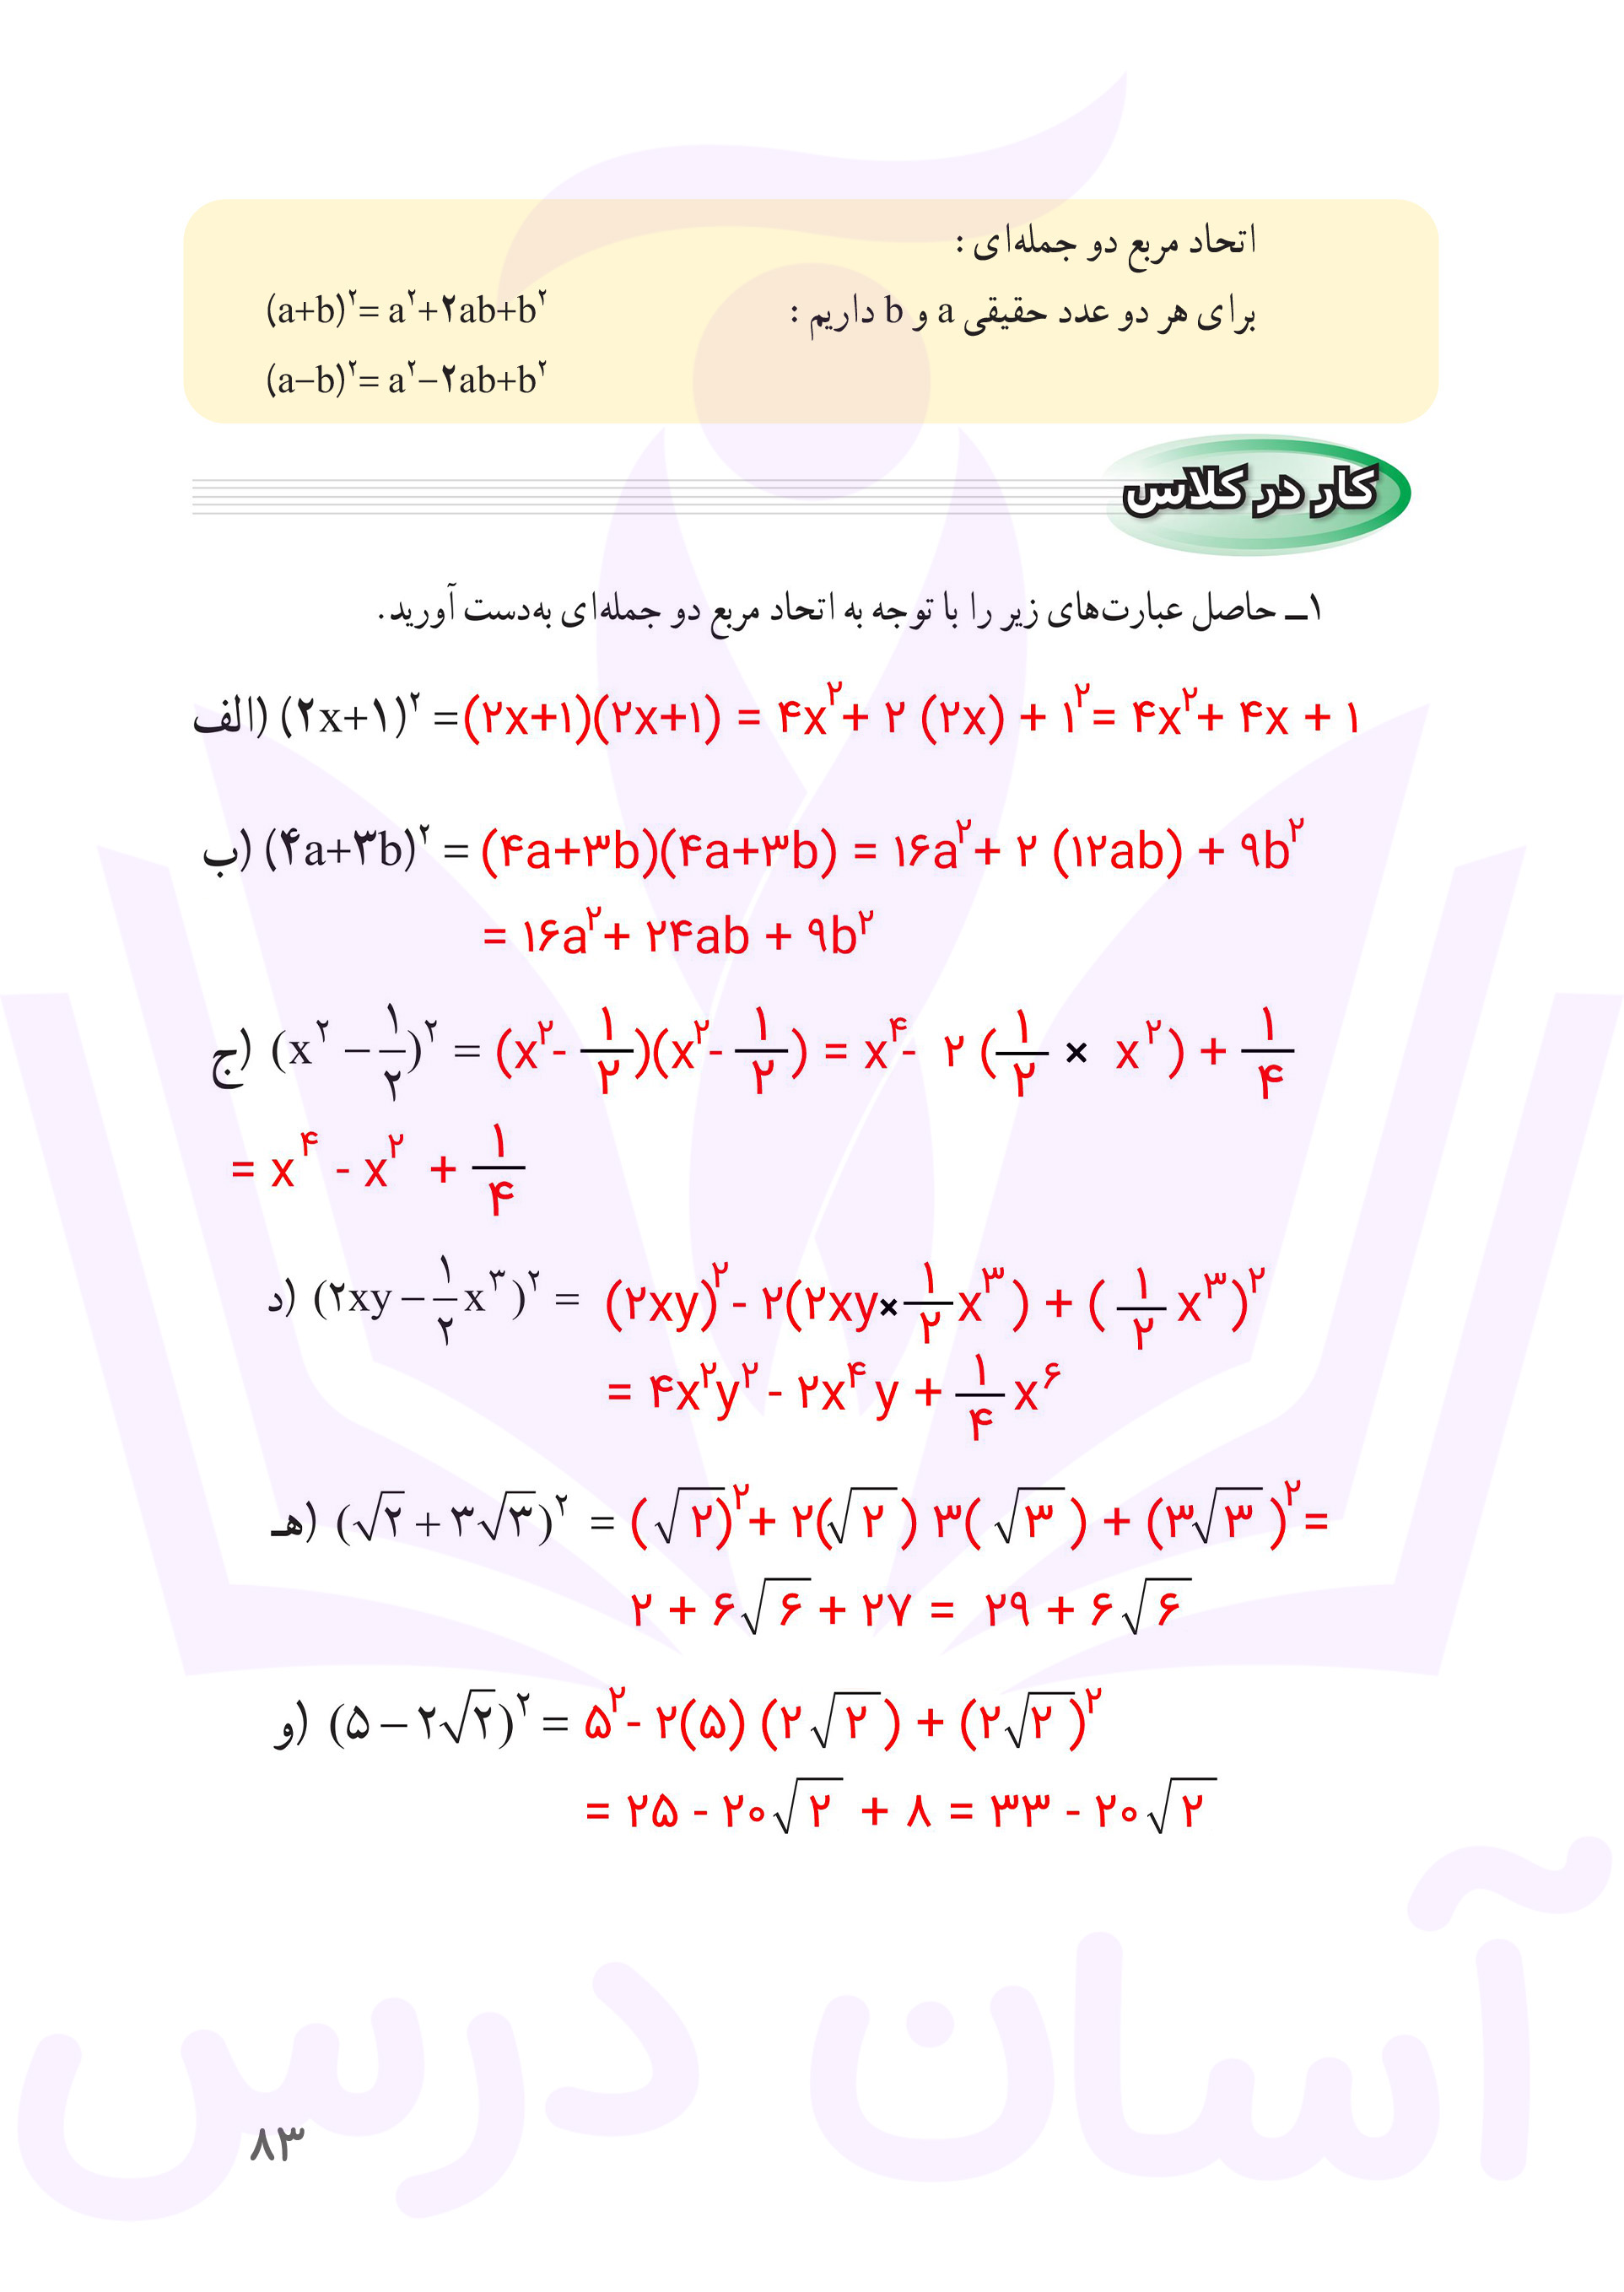 اتحاد مربع دو جمله‌ای :
برای هر دو عدد حقیقی a و b داریم : (a+b)^۲= a^۲+۲ab+b^۲
(a−b)^۲= a^۲−۲ab+b^۲
کار در کلاس
۱ــ حاصل عبارت‌های زیر را با توجه به اتحاد مربع دو جمله‌ای به‌دست آورید.
الف) (۲x+۱)^۲ =(۲x+۱)(۲x+۱) = ۴x^۲+ ۲ (۲x) + ۱^۲= ۴x^۲+ ۴x + ۱
ب) (۴a+۳b)^۲ = (۴a+۳b)(۴a+۳b) = ۱۶a^۲+ ۲ (۱۲ab) + ۹b^۲
= ۱۶a^۲+ ۲۴ab + ۹b^۲
ج) (x^۲ − ۱/۲)^۲ = (x^۲- ۱/۲)(x^۲- ۱/۲) = x^۴- ۲ (۱/۲ × x^۲) + ۱/۴
= x^۴ - x^۲ + ۱/۴
د) (۲xy − ۱/۲ x^۳)^۲ = (۲xy)^۲- ۲(۲xy×۱/۲ x^۳) + (۱/۲ x^۳)^۲
= ۴x^۲y^۲ - ۲x^۴y + ۱/۴ x^۶
هـ) (√۲ + ۳√۳)^۲ = (√۲)^۲+ ۲(√۲) ۳(√۳) + (۳√۳)^۲=
۲ + ۶√۶ + ۲۷ = ۲۹ + ۶√۶
و) (۵ − ۲√۲)^۲ = ۵^۲- ۲(۵) (۲√۲) + (۲√۲)^۲
= ۲۵ - ۲۰√۲ + ۸ = ۳۳ - ۲۰√۲
آسان درس
۸۳